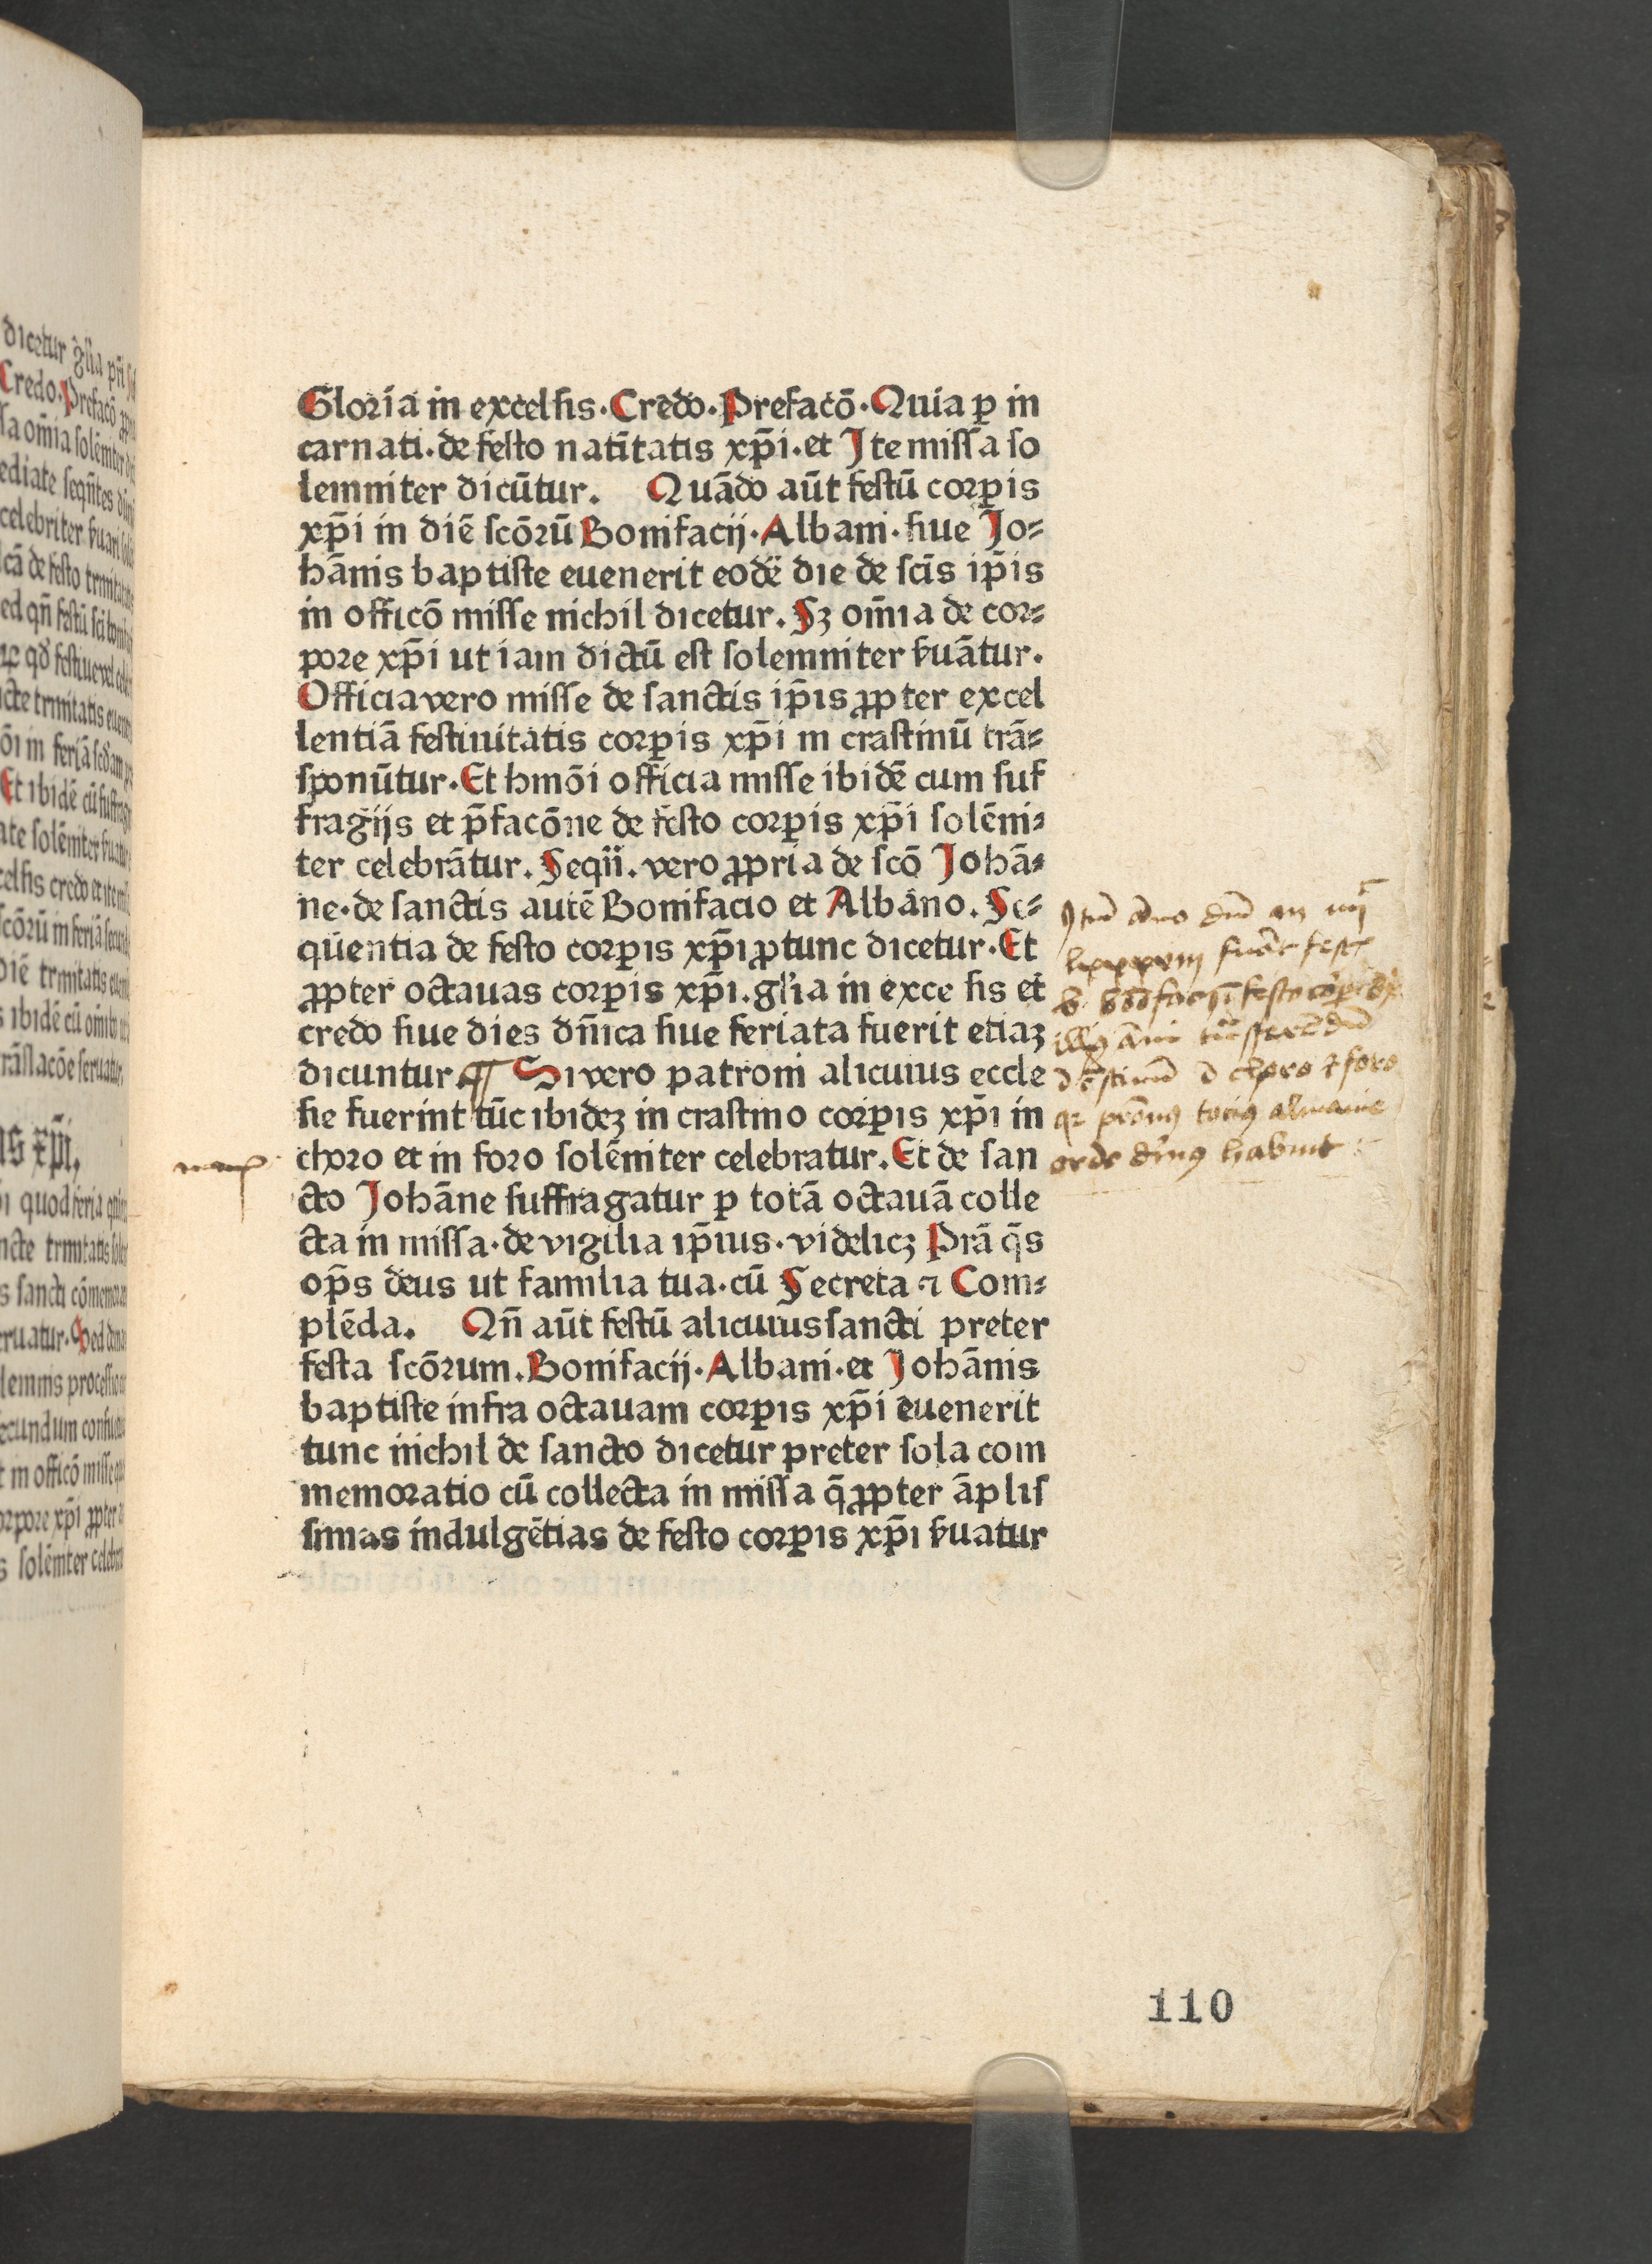 Gloria in excelsis. Credo. Prefacō. Quia ꝑ in
carnati. de festo natītatis xp̄i. et Ite missa so
lemniter dicūtur. Quādo aūt festū corꝑis
xp̄i in diē scōrū Bonifacij. Albani. siue Jo-
hānis baptiste euenerit eodē die de scīs ip̄is
in officō misse nichil dicetur. Sꝫ om̄ia de cor-
pore xp̄i ut iam dictū est solemniter ẜuātur.
Officia vero misse de sanctis ip̄is ꝓpter excel
lentiā festiuitatis corꝑis xp̄i in crastinū trā-
sponūtur. Et hmōi officia misse ibidē cum suf
fragijs et p̄facōne de festo corꝑis xp̄i solēni-
ter celebrātur. Seqn̄. vero ꝓpria de scō Johā-
ne. de sanctis autē Bonifacio et Albano. Se-
qūentia de festo corꝑis xp̄i ꝓtunc dicetur. Et
ꝓpter octauas corꝑis xp̄i. gl'ia in exce sis et
credo siue dies dn̄ica siue feriata fuerit etiaꝫ
dicuntur ¶ Si vero patroni alicuius eccle
sie fuerint tūc ibideꝫ in crastino corꝑis xp̄i in
choro et in foro solēniter celebratur. Et de san
cto Johāne suffragatur ꝑ totā octauā colle
cta in missa. de vigilia ip̄ius. videlicꝫ Prā q̄s
op̄s deus ut familia tua. cū Secreta ⁊ Com-
plēda. Qn̄ aūt festū alicuius sancti preter
festa scōrum. Bonifacij. Albani. et Johānis
baptiste infra octauam corꝑis xp̄i euenerit
tunc nichil de sancto dicetur preter sola com
memoratio cū collecta in missa q̄ ꝓpter āplis
simas indulgētias de festo corꝑis xp̄i ẜuatur
110